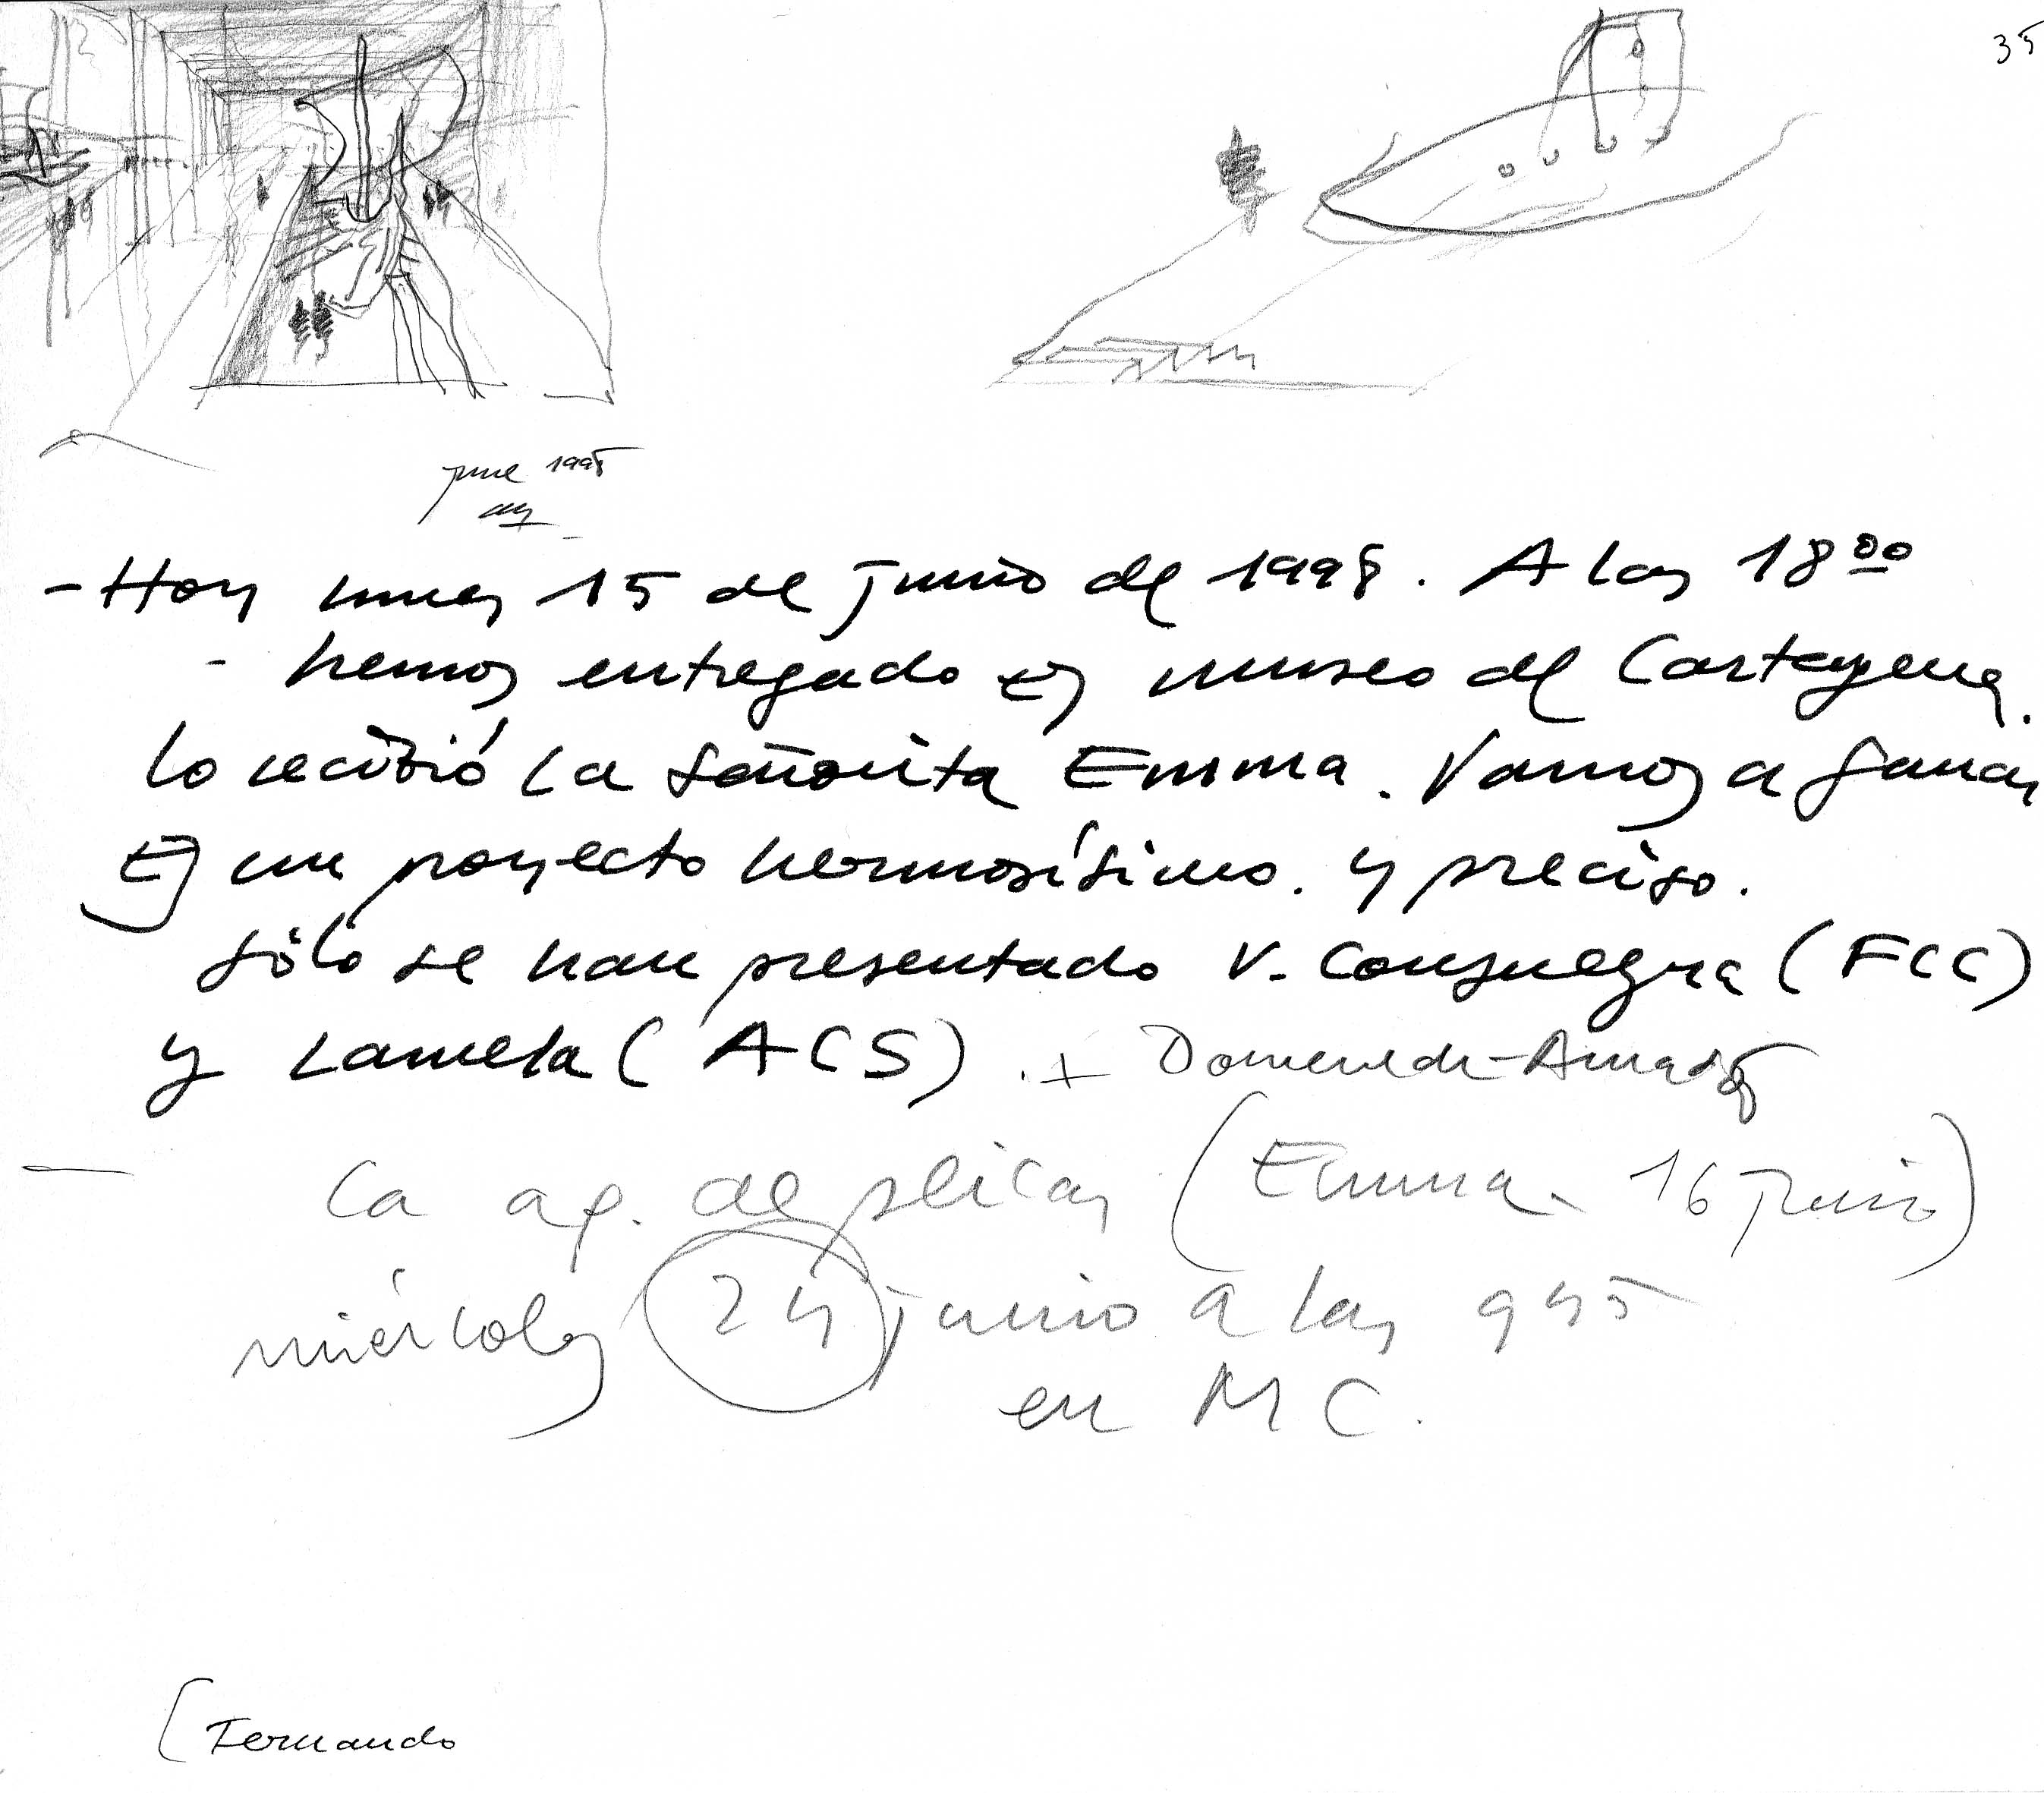 35
june 1998
- Hoy lunes 15 de junio de 1998. A las 18ºº
- hemos entregado el museo de Cartagena.
lo recibió la señorita Emma. Vamos a ganar
Es un proyecto hermosísimo. y preciso.
sólo se han presentado V. Consuegra (FCC)
y Lamela (ACS). + Domenech-Amadó
— la ap. de plicas (Emma. 16 junio)
miércoles 24 junio a las 945
en MC.
(Fernando